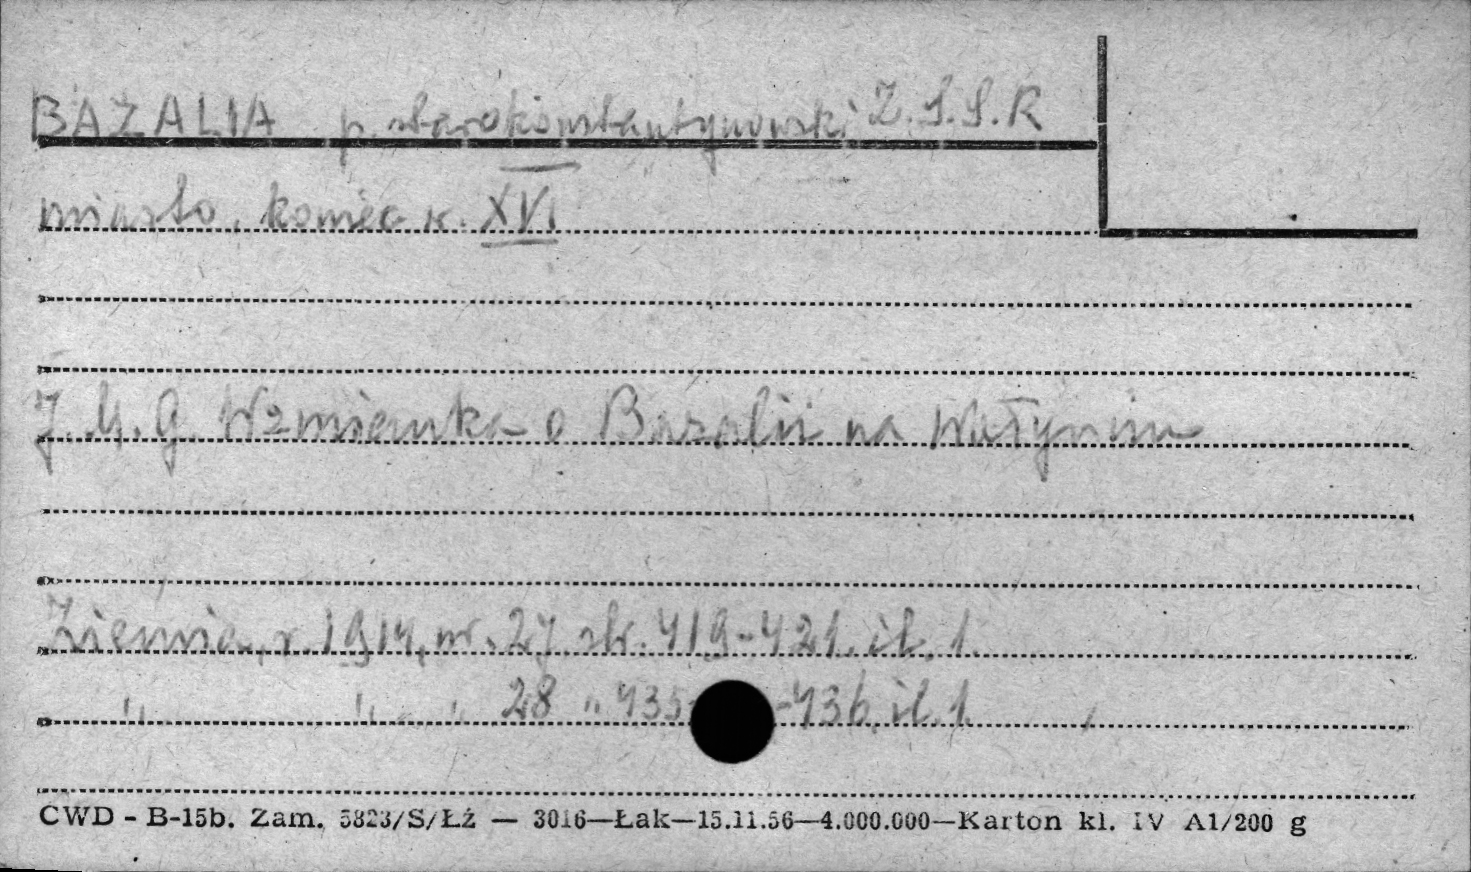 BAZALIA p. starokonstantynowski Z.S.S.R
miasto, koniec w. XVI
J. M. G. Wzmianka o Bazalii na Wołyniu
Ziemia, r. 1914, nr. 27 str. 419-421, il. 1.
" " " 28 " 435- -436, il. 1
CWD - B-15b. Zam. 5823/S/Łż — 3016—Łak—15.11.56—4.000.000—Karton kl. IV A1/200 g